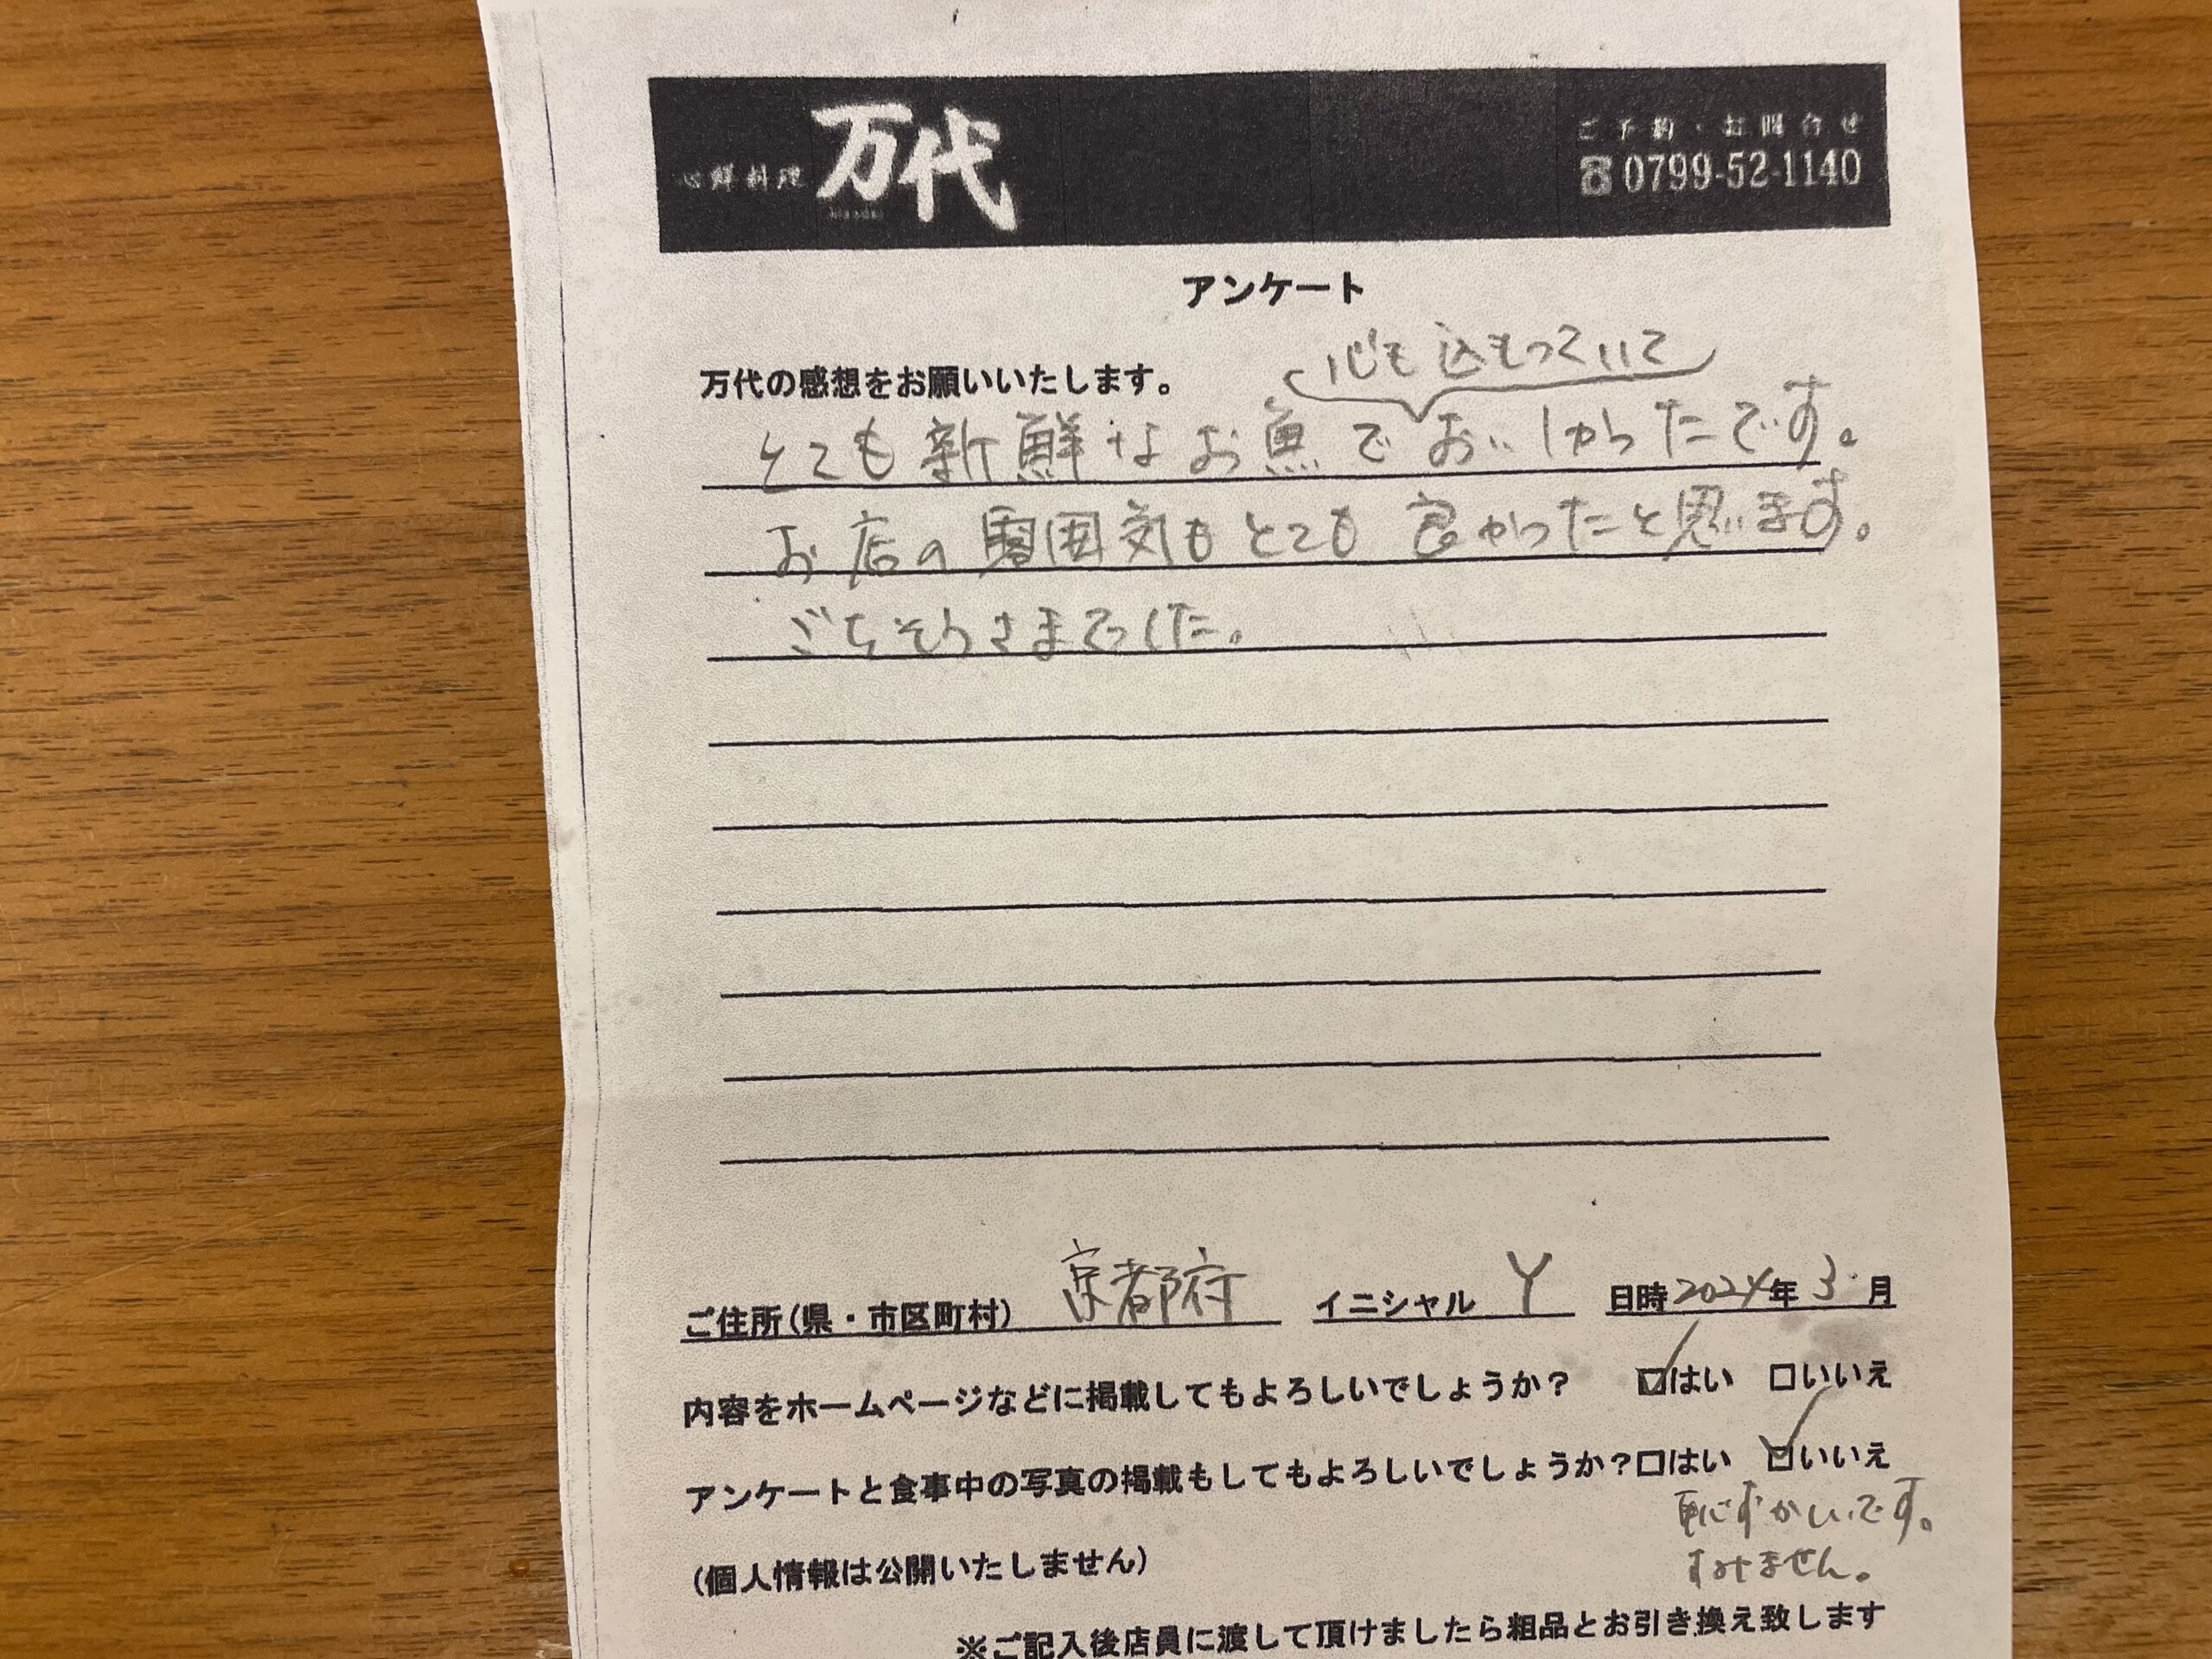 心鮮料理 万代
ご予約・お問合せ
☎0799-52-1140
アンケート
万代の感想をお願いいたします。
心も込もっていて
とても新鮮なお魚でおいしかったです。
お店の雰囲気もとても良かったと思います。
ごちそうさまでした。
ご住所(県・市区町村) 京都府 イニシャル Y 日時 2024年 3 月
内容をホームページなどに掲載してもよろしいでしょうか? ☑はい □いいえ
アンケートと食事中の写真の掲載もしてもよろしいでしょうか?□はい ☑いいえ
恥ずかしいです。
すみません。
(個人情報は公開いたしません)
※ご記入後店員に渡して頂けましたら粗品とお引き換え致します